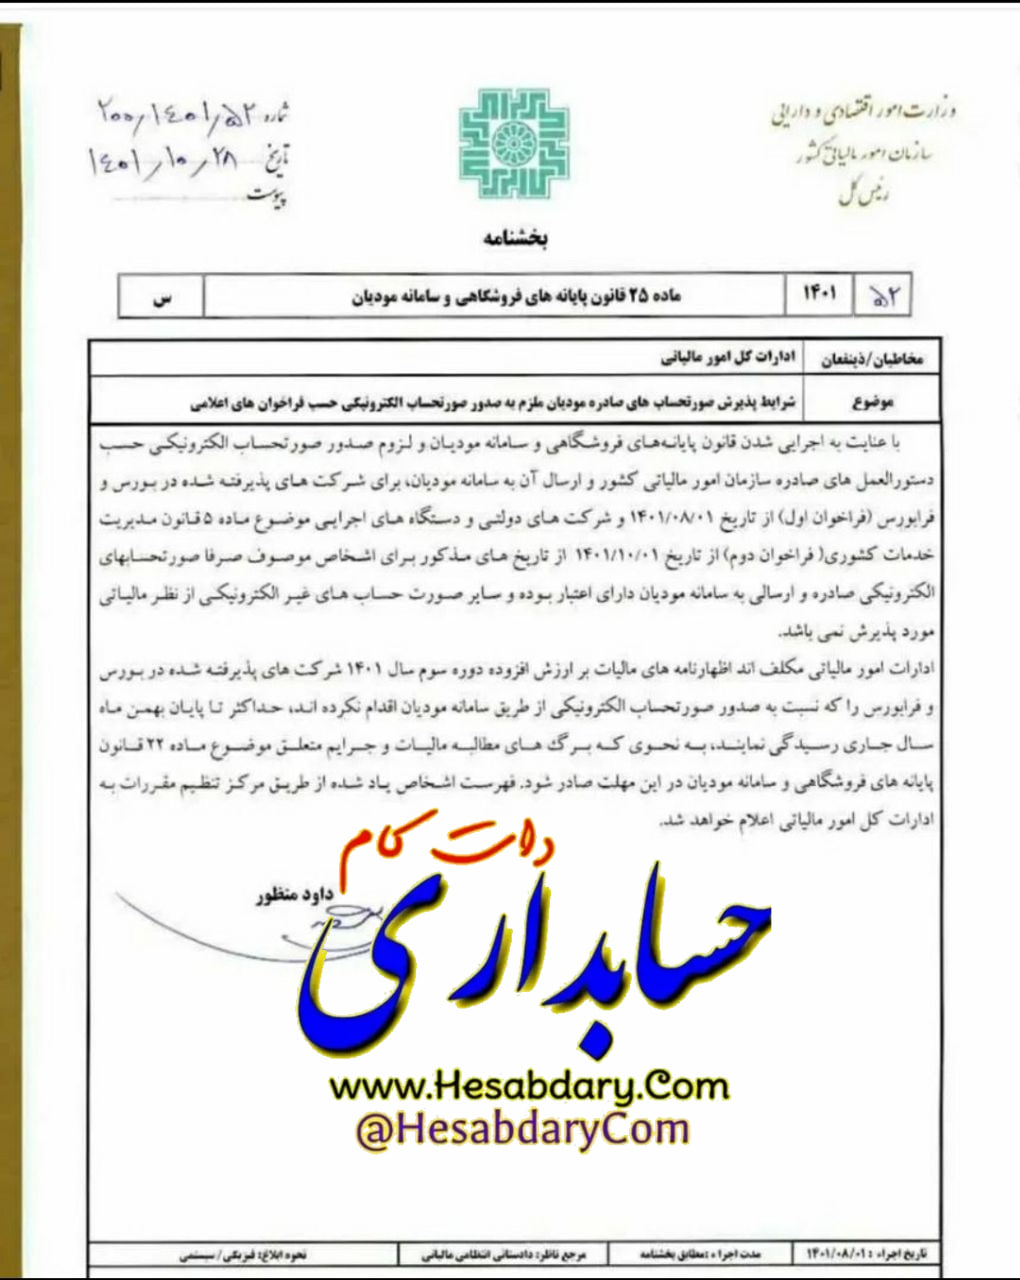 وزارت امور اقتصادی و دارایی
سازمان امور مالیاتی کشور
رئیس کل
شماره ۲۰۰/۱۴۰۱/۵۲
تاریخ ۱۴۰۱/۱۰/۲۸
پیوست
بخشنامه
۵۲ ۱۴۰۱ ماده ۲۵ قانون پایانه های فروشگاهی و سامانه مودیان س
مخاطبان/ذینفعان ادارات کل امور مالیاتی
موضوع شرایط پذیرش صورتحساب های صادره مودیان ملزم به صدور صورتحساب الکترونیکی حسب فراخوان های اعلامی
با عنایت به اجرایی شدن قانون پایانه‌های فروشگاهی و سامانه مودیان و لزوم صدور صورتحساب الکترونیکی حسب
دستورالعمل های صادره سازمان امور مالیاتی کشور و ارسال آن به سامانه مودیان، برای شرکت های پذیرفته شده در بورس و
فرابورس (فراخوان اول) از تاریخ ۱۴۰۱/۰۸/۰۱ و شرکت های دولتی و دستگاه های اجرایی موضوع ماده ۵ قانون مدیریت
خدمات کشوری( فراخوان دوم) از تاریخ ۱۴۰۱/۱۰/۰۱ از تاریخ های مذکور برای اشخاص موصوف صرفا صورتحسابهای
الکترونیکی صادره و ارسالی به سامانه مودیان دارای اعتبار بوده و سایر صورت حساب های غیر الکترونیکی از نظر مالیاتی
مورد پذیرش نمی باشد.
ادارات امور مالیاتی مکلف اند اظهارنامه های مالیات بر ارزش افزوده دوره سوم سال ۱۴۰۱ شرکت های پذیرفته شده در بورس
و فرابورس را که نسبت به صدور صورتحساب الکترونیکی از طریق سامانه مودیان اقدام نکرده اند، حداکثر تا پایان بهمن ماه
سال جاری رسیدگی نمایند، به نحوی که برگ های مطالبه مالیات و جرایم متعلق موضوع ماده ۲۲ قانون
پایانه های فروشگاهی و سامانه مودیان در این مهلت صادر شود. فهرست اشخاص یاد شده از طریق مرکز تنظیم مقررات به
ادارات کل امور مالیاتی اعلام خواهد شد.
داود منظور
حسابداری دات کام
www.Hesabdary.Com
@HesabdaryCom
تاریخ اجراء : ۱۴۰۱/۰۸/۰۱ مدت اجراء :مطابق بخشنامه مرجع ناظر: دادستانی انتظامی مالیاتی نحوه ابلاغ: فیزیکی/سیستمی